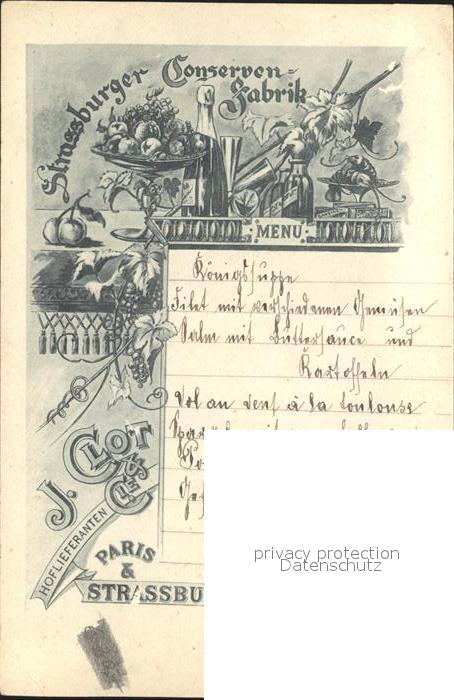 Strassburger Conserven-
Fabrik
MENU
Königssuppe
Filet mit verschiedenen Gemüsen
Salm mit Buttersauce und
Kartoffeln
Vol au vent à la toulouse
mit
J. CLOT & CIE.
HOFLIEFERANTEN
PARIS
&
STRASSBU
privacy protection
Datenschutz